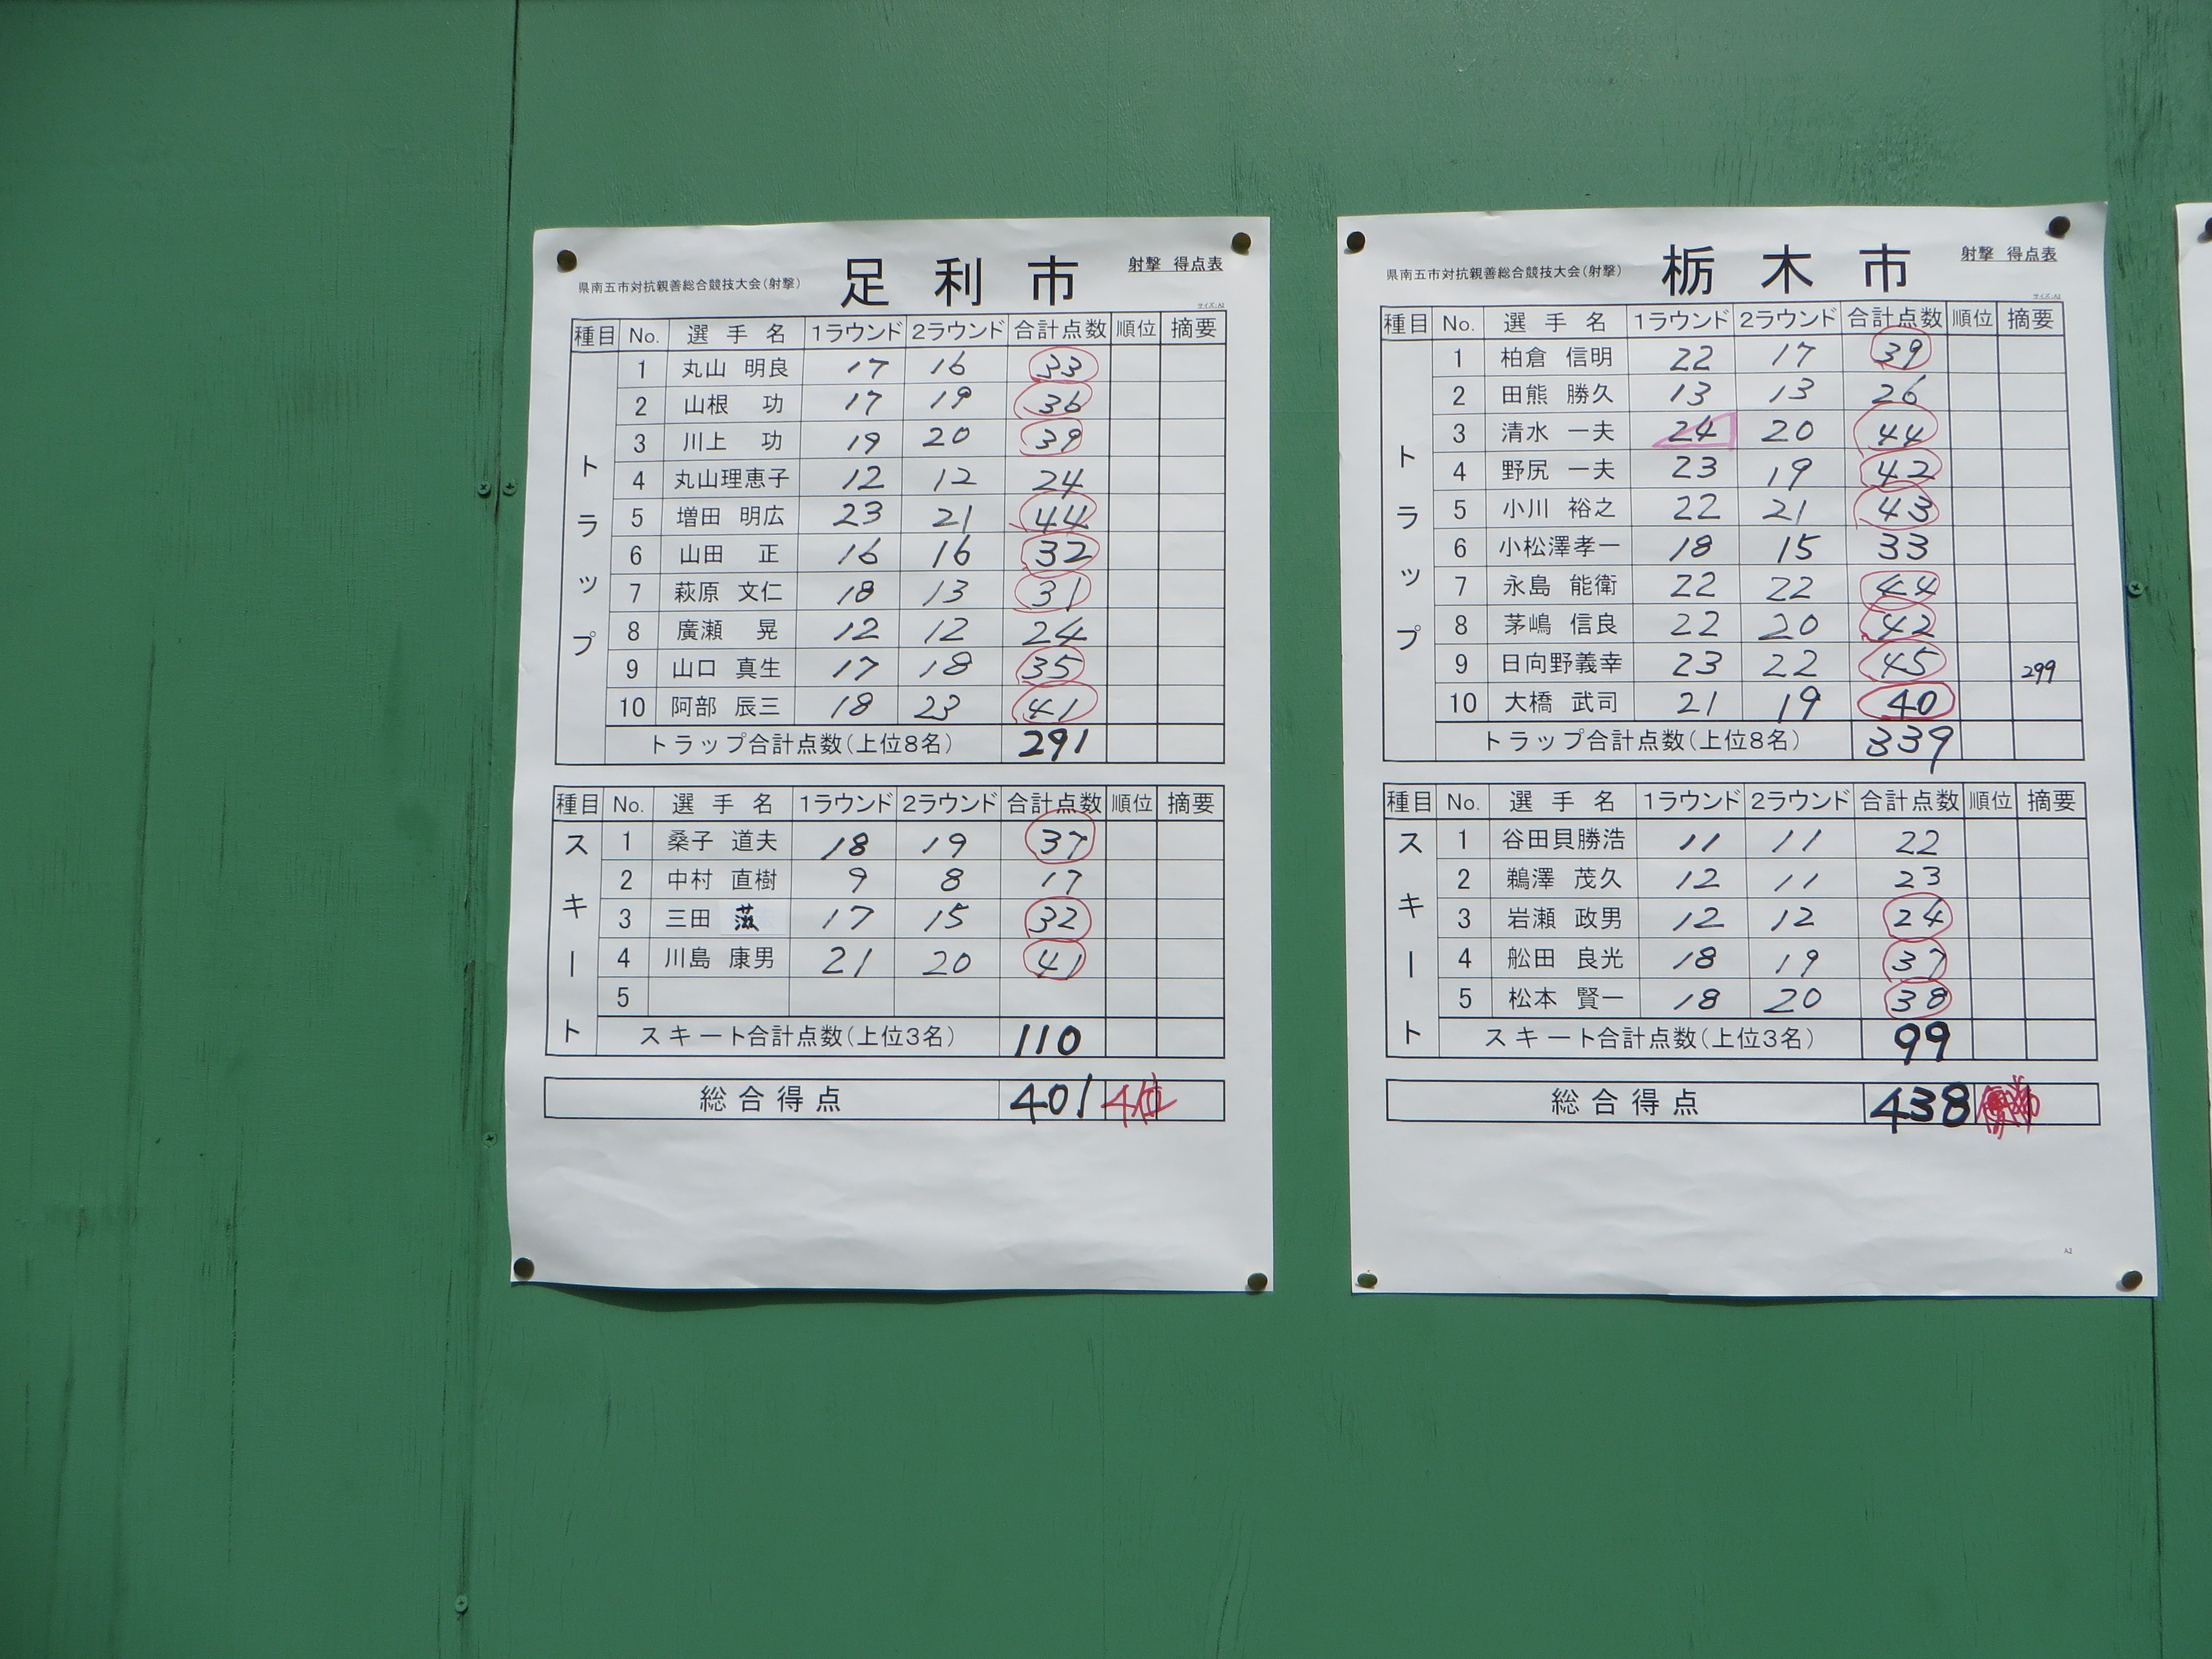 県南五市対抗親善総合競技大会(射撃) 足利市 射撃 得点表
サイズ:A2
種目 No. 選手名 1ラウンド 2ラウンド 合計点数 順位 摘要
トラップ
1 丸山 明良 17 16 33
2 山根 功 17 19 36
3 川上 功 19 20 39
4 丸山理恵子 12 12 24
5 増田 明広 23 21 44
6 山田 正 16 16 32
7 萩原 文仁 18 13 31
8 廣瀬 晃 12 12 24
9 山口 真生 17 18 35
10 阿部 辰三 18 23 41
トラップ合計点数(上位8名) 291
種目 No. 選手名 1ラウンド 2ラウンド 合計点数 順位 摘要
スキート
1 桑子 道夫 18 19 37
2 中村 直樹 9 8 17
3 三田 17 15 32
4 川島 康男 21 20 41
5
スキート合計点数(上位3名) 110
総合得点 401 4位
県南五市対抗親善総合競技大会(射撃) 栃木市 射撃 得点表
サイズ:A2
種目 No. 選手名 1ラウンド 2ラウンド 合計点数 順位 摘要
トラップ
1 柏倉 信明 22 17 39
2 田熊 勝久 13 13 26
3 清水 一夫 24 20 44
4 野尻 一夫 23 19 42
5 小川 裕之 22 21 43
6 小松澤孝一 18 15 33
7 永島 能衛 22 22 44
8 茅嶋 信良 22 20 42
9 日向野義幸 23 22 45 299
10 大橋 武司 21 19 40
トラップ合計点数(上位8名) 339
種目 No. 選手名 1ラウンド 2ラウンド 合計点数 順位 摘要
スキート
1 谷田貝勝浩 11 11 22
2 鵜澤 茂久 12 11 23
3 岩瀬 政男 12 12 24
4 舩田 良光 18 19 37
5 松本 賢一 18 20 38
スキート合計点数(上位3名) 99
総合得点 438
A2